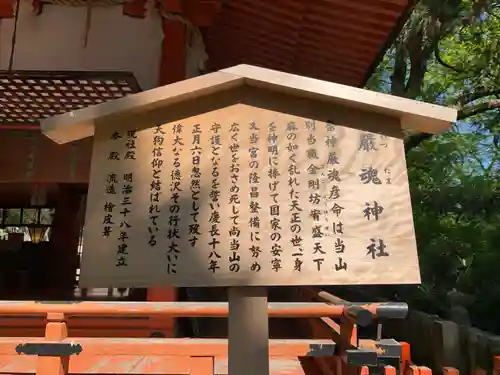 厳魂神社
いづ たま
祭神厳魂彦命は当山
別当職金剛坊宥盛天下
麻の如く乱れた天正の世一身
を神明に捧げて国家の安寧
又当宮の隆昌整備に努め
広く世をおさめ死して尚当山の
守護となるを誓い慶長十八年
正月六日忽然として歿す
偉大なる徳沢その行状大いに
天狗信仰と結ばれている
現社殿
本殿 明治三十八年建立
流造 檜皮葺